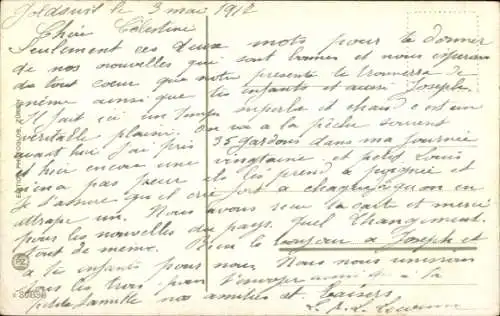 le 3 mai 1912
Chère Célestine
Seulement ces deux mots pour te donner
de nos nouvelles qui sont bonnes et nous espérons
de tout coeur que notre présente te trouvera de
même ainsi que tes enfants et aussi Joseph.
Il fait ici un temps superbe et chaud c'est un
véritable plaisir. On va à la pêche souvent
avant hier j'ai pris 35 gardons dans ma journée
et hier encore une vingtaine et petit Louis
n'a pas peur il les prend à poignée et
je t'assure qu'il crie fort à chaque qu'on en
attrape un. Nous avons reçu la carte et merci
pour les nouvelles du pays quel changement
tout de même. Bien le bonjour à Joseph et
à tes enfants pour nous. Nous nous unissons
tous les trois pour t'envoyer ainsi qu'à ta
petite famille nos amitiés et baisers